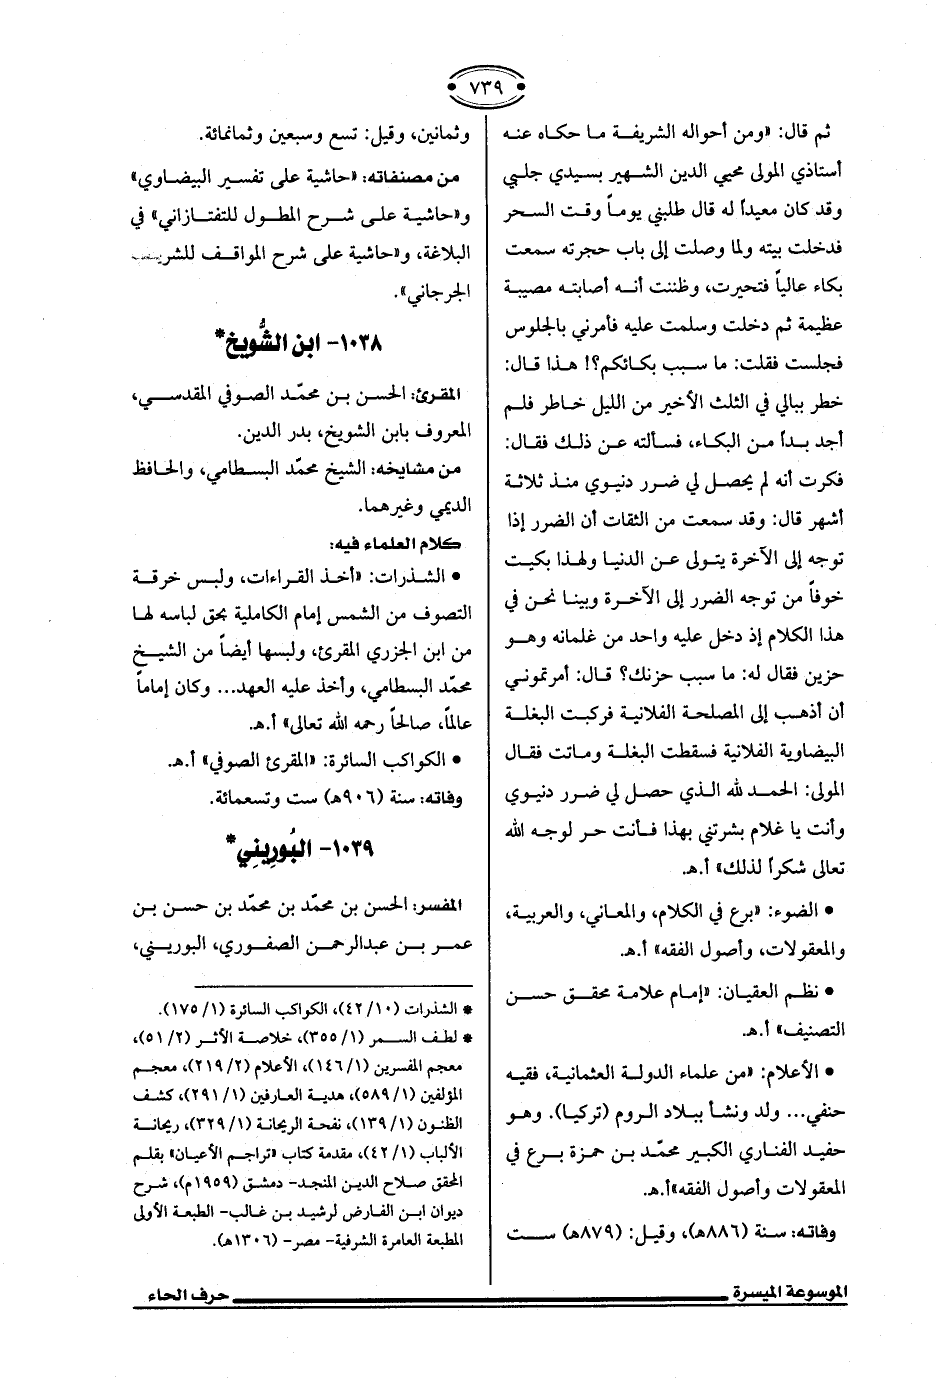 ٧٣٩
ثم قال: «ومن أحواله الشريفة ما حكاه عنه
أستاذي المولى محيي الدين الشهير بسيدي جلبي
وقد كان معيداً له قال طلبني يوماً وقت السحر
فدخلت بيته ولما وصلت إلى باب حجرته سمعت
بكاء عالياً فتحيرت، وظننت أنه أصابته مصيبة
عظيمة ثم دخلت وسلمت عليه فأمرني بالجلوس
فجلست فقلت: ما سبب بكائكم؟! هذا قال:
خطر ببالي في الثلث الأخير من الليل خاطر فلم
أجد بداً من البكاء، فسألته عن ذلك فقال:
فكرت أنه لم يحصل لي ضرر دنيوي منذ ثلاثة
أشهر قال: وقد سمعت من الثقات أن الضرر إذا
توجه إلى الآخرة يتولى عن الدنيا ولهذا بكيت
خوفاً من توجه الضرر إلى الآخرة وبينا نحن في
هذا الكلام إذ دخل عليه واحد من غلمانه وهو
حزين فقال له: ما سبب حزنك؟ قال: أمرتموني
أن أذهب إلى المصلحة الفلانية فركبت البغلة
البيضاوية الفلانية فسقطت البغلة وماتت فقال
المولى: الحمد لله الذي حصل لي ضرر دنيوي
وأنت يا غلام بشرتني بهذا فأنت حر لوجه الله
تعالى شكراً لذلك» أ.هـ.
• الضوء: «برع في الكلام، والمعاني، والعربية،
والمعقولات، وأصول الفقه» أ.هـ.
• نظم العقيان: «إمام علامة محقق حسن
التصنيف» أ.هـ.
• الأعلام: «من علماء الدولة العثمانية، فقيه
حنفي... ولد ونشأ ببلاد الروم (تركيا). وهو
حفيد الفناري الكبير محمّد بن حمزة برع في
المعقولات وأصول الفقه»أ.هـ.
وفاته: سنة (٨٨٦هـ)، وقيل: (٨٧٩هـ) ست
وثمانين، وقيل: تسع وسبعين وثمانمائة.
من مصنفاته: «حاشية على تفسير البيضاوي»
و«حاشية على شرح المطول للتفتازاني» في
البلاغة، و«حاشية على شرح المواقف للشريف
الجرجاني».
١٠٣٨- ابن الشُّويخ*
المقرئ: الحسن بن محمّد الصوفي المقدسي،
المعروف بابن الشويخ، بدر الدين.
من مشايخه: الشيخ محمّد البسطامي، والحافظ
الديمي وغيرهما.
كلام العلماء فيه:
• الشذرات: «أخذ القراءات، ولبس خرقة
التصوف من الشمس إمام الكاملية بحق لباسه لها
من ابن الجزري المقرئ، ولبسها أيضاً من الشيخ
محمّد البسطامي، وأخذ عليه العهد... وكان إماماً
عالماً، صالحاً رحمه الله تعالى» أ.هـ.
• الكواكب السائرة: «المقرئ الصوفي» أ.هـ.
وفاته: سنة (٩٠٦هـ) ست وتسعمائة.
١٠٣٩- البُورِيِني*
المفسر: الحسن بن محمّد بن محمّد بن حسن بن
عمر بن عبدالرحمن الصفوري، البوريني،
* الشذرات (١٠/ ٤٢)، الكواكب السائرة (١/ ١٧٥).
* لطف السمر (١/ ٣٥٥)، خلاصة الأثر (٢/ ٥١)،
معجم المفسرين (١/ ١٤٦)، الأعلام (٢/ ٢١٩)، معجم
المؤلفين (١/ ٥٨٩)، هدية العارفين (١/ ٢٩١)، كشف
الظنون (١/ ١٣٩)، نفحة الريحانة (١/ ٣٢٩)، ريحانة
الألباب (١/ ٤٢)، مقدمة كتاب «تراجم الأعيان» بقلم
المحقق صلاح الدين المنجد- دمشق (١٩٥٩م)، شرح
ديوان ابن الفارض لرشيد بن غالب- الطبعة الأولى
المطبعة العامرة الشرفية- مصر- (١٣٠٦هـ).
الموسوعة الميسرة
حرف الحاء